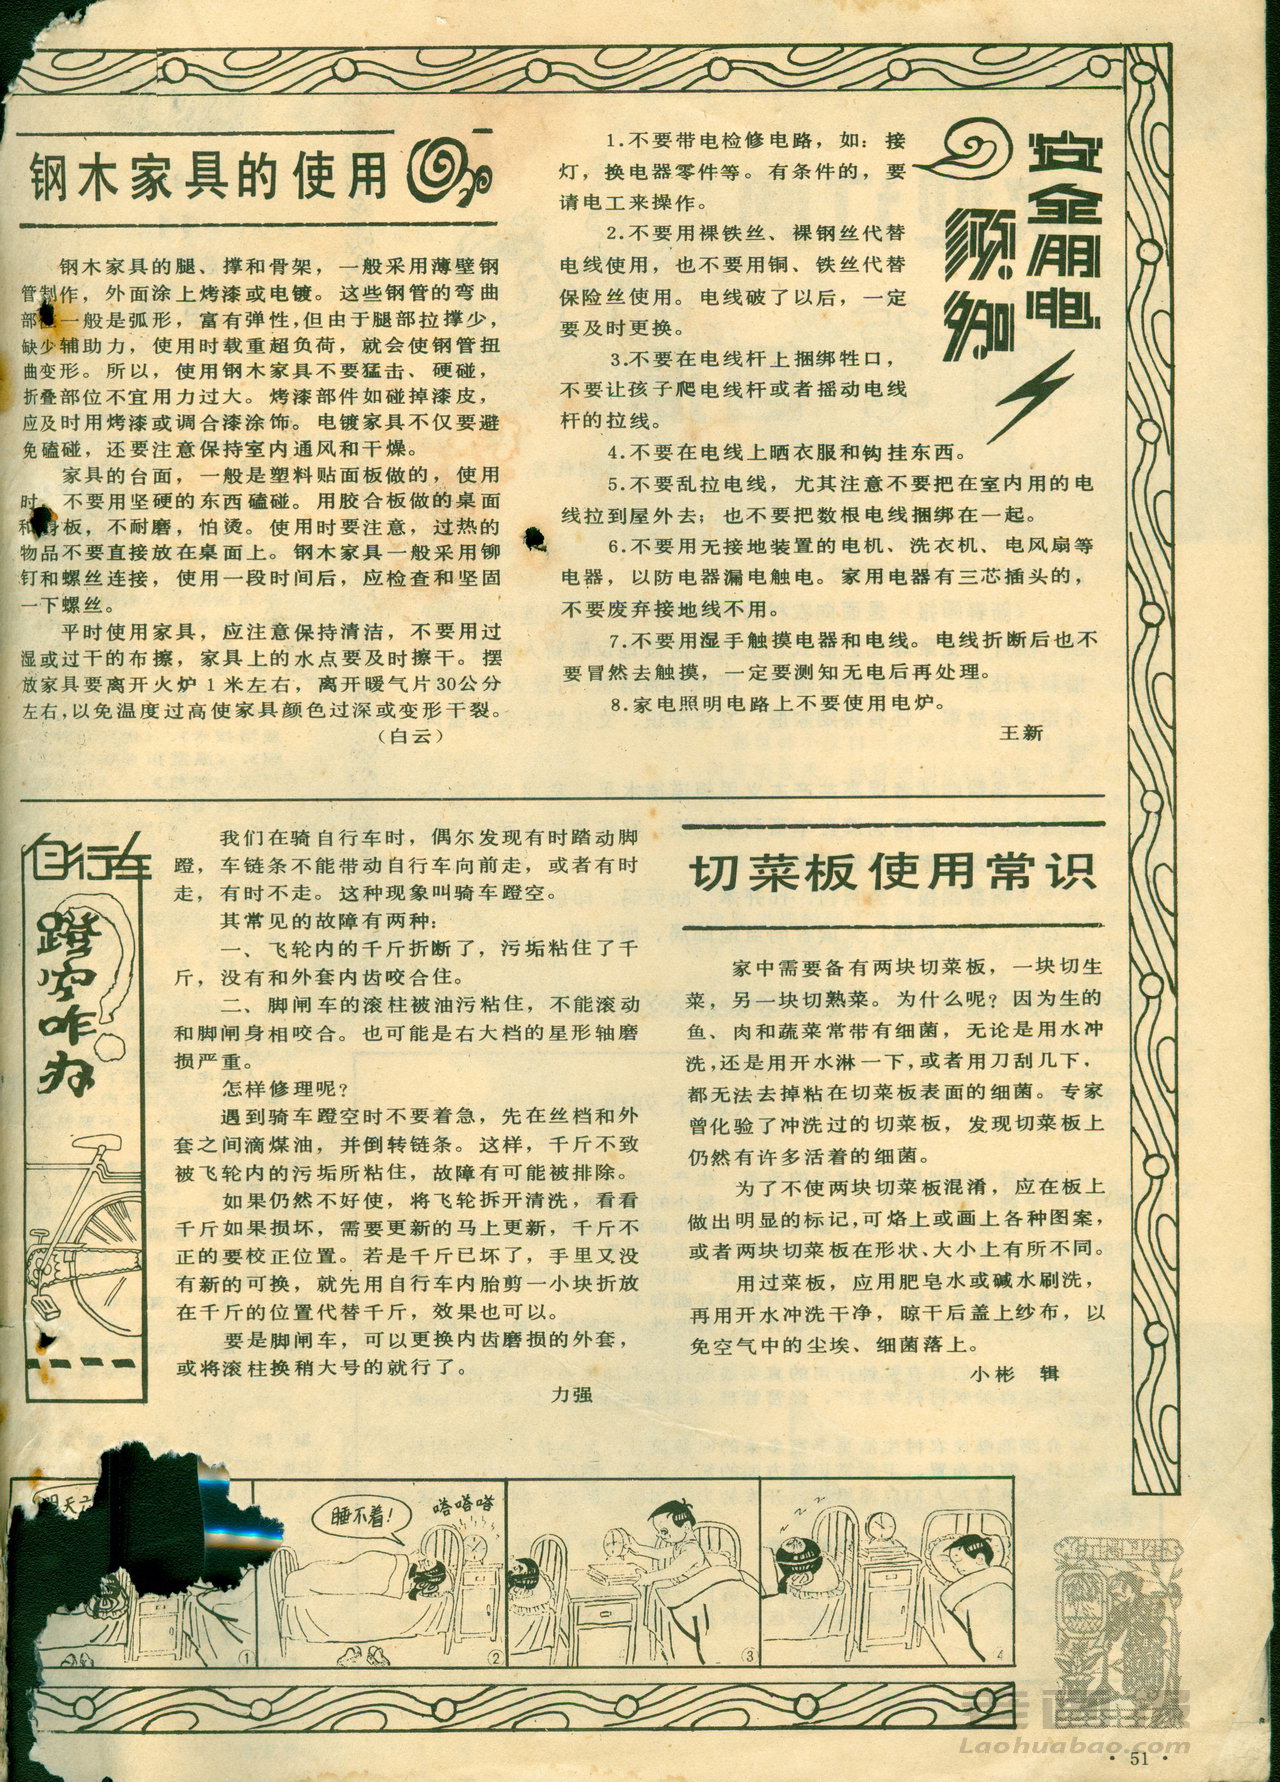 钢木家具的使用
钢木家具的腿、撑和骨架，一般采用薄壁钢
管制作，外面涂上烤漆或电镀。这些钢管的弯曲
部 一般是弧形，富有弹性，但由于腿部拉撑少，
缺少辅助力，使用时载重超负荷，就会使钢管扭
曲变形。所以，使用钢木家具不要猛击、硬碰，
折叠部位不宜用力过大。烤漆部件如碰掉漆皮，
应及时用烤漆或调合漆涂饰。电镀家具不仅要避
免磕碰，还要注意保持室内通风和干燥。
家具的台面，一般是塑料贴面板做的，使用
时，不要用坚硬的东西磕碰。用胶合板做的桌面
和 板，不耐磨，怕烫。使用时要注意，过热的
物品不要直接放在桌面上。钢木家具一般采用铆
钉和螺丝连接，使用一段时间后，应检查和坚固
一下螺丝。
平时使用家具，应注意保持清洁，不要用过
湿或过干的布擦，家具上的水点要及时擦干。摆
放家具要离开火炉1米左右，离开暖气片30公分
左右，以免温度过高使家具颜色过深或变形干裂。
（白云）
安全用电
须知
1.不要带电检修电路，如：接
灯，换电器零件等。有条件的，要
请电工来操作。
2.不要用裸铁丝、裸钢丝代替
电线使用，也不要用铜、铁丝代替
保险丝使用。电线破了以后，一定
要及时更换。
3.不要在电线杆上捆绑牲口，
不要让孩子爬电线杆或者摇动电线
杆的拉线。
4.不要在电线上晒衣服和钩挂东西。
5.不要乱拉电线，尤其注意不要把在室内用的电
线拉到屋外去；也不要把数根电线捆绑在一起。
6.不要用无接地装置的电机、洗衣机、电风扇等
电器，以防电器漏电触电。家用电器有三芯插头的，
不要废弃接地线不用。
7.不要用湿手触摸电器和电线。电线折断后也不
要冒然去触摸，一定要测知无电后再处理。
8.家电照明电路上不要使用电炉。
王新
自行车
蹬空咋办？
我们在骑自行车时，偶尔发现有时踏动脚
蹬，车链条不能带动自行车向前走，或者有时
走，有时不走。这种现象叫骑车蹬空。
其常见的故障有两种：
一、飞轮内的千斤折断了，污垢粘住了千
斤，没有和外套内齿咬合住。
二、脚闸车的滚柱被油污粘住，不能滚动
和脚闸身相咬合。也可能是右大档的星形轴磨
损严重。
怎样修理呢？
遇到骑车蹬空时不要着急，先在丝档和外
套之间滴煤油，并倒转链条。这样，千斤不致
被飞轮内的污垢所粘住，故障有可能被排除。
如果仍然不好使，将飞轮拆开清洗，看看
千斤如果损坏，需要更新的马上更新，千斤不
正的要校正位置。若是千斤已坏了，手里又没
有新的可换，就先用自行车内胎剪一小块折放
在千斤的位置代替千斤，效果也可以。
要是脚闸车，可以更换内齿磨损的外套，
或将滚柱换稍大号的就行了。
力强
切菜板使用常识
家中需要备有两块切菜板，一块切生
菜，另一块切熟菜。为什么呢？因为生的
鱼、肉和蔬菜常带有细菌，无论是用水冲
洗，还是用开水淋一下，或者用刀刮几下，
都无法去掉粘在切菜板表面的细菌。专家
曾化验了冲洗过的切菜板，发现切菜板上
仍然有许多活着的细菌。
为了不使两块切菜板混淆，应在板上
做出明显的标记，可烙上或画上各种图案，
或者两块切菜板在形状、大小上有所不同。
用过菜板，应用肥皂水或碱水刷洗，
再用开水冲洗干净，晾干后盖上纱布，以
免空气中的尘埃、细菌落上。
小彬 辑
明天六
①
睡不着！
嗒嗒嗒
②
③
zzz
4
老画报
Laohuabao.com
· 51 ·